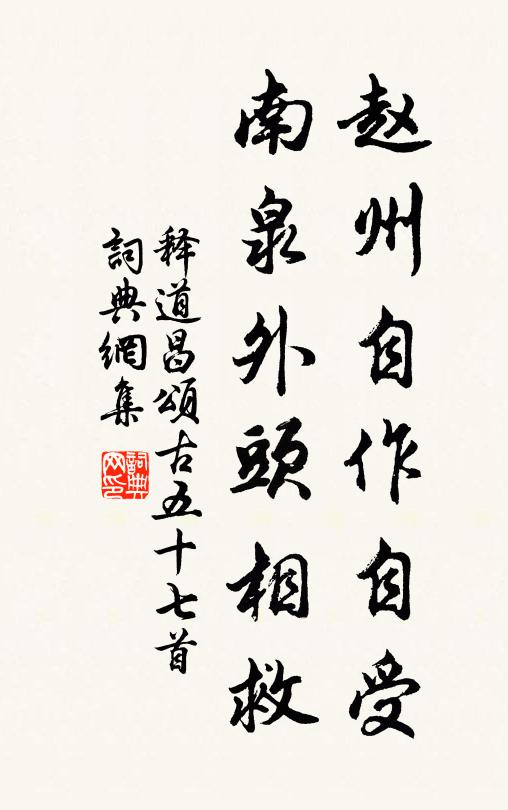 赵州自作自受
南泉外頭相救
释道昌頌古五十七首
詞典網集
詞典网印